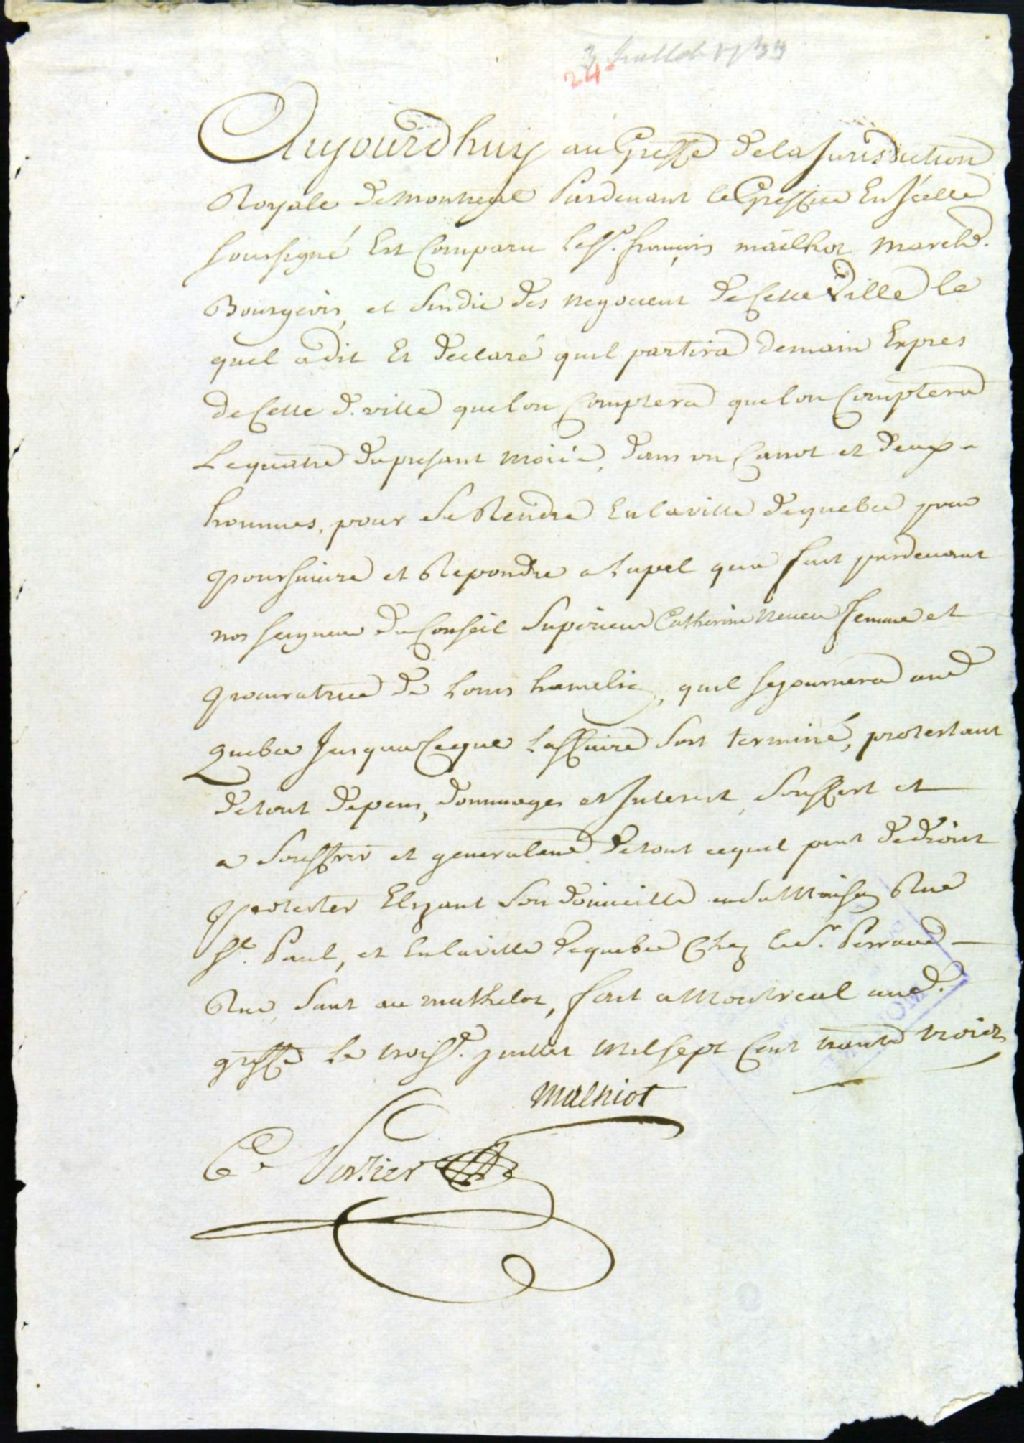 3 Juillet 1733
24
Aujourdhuy au Greffe de la Jurisdiction
Royale de montreal Pardevant le Greffier En Jcelle
soussigné Est Comparu le Sr. françois mailhot march.
Bourgeois, et Sindic des negocient de Cette Ville le
quel a dit Et declaré quil partira demain Expres
de Cette d. ville que lon Comptera que lon Comptera
Le quatre du present mois, dans un Canot et deux
hommes, pour Se Rendre En la ville de quebec pour
poursuivre et Repondre a Lapel qua fait pardevant
nos seigneur du Conseil Superieur Catherine Neveu femme et
procuratrice de Louis hamelin, quil sejournera aud
quebec Jusqua Ceque Laffaire soit terminé, protestant
de tout depens, dommages et Interest, souffert et
a Souffrir et generalemt de tout cequil peut de droit
protester Elizant son domicille en sa Maison Rue
St. Paul, et En la ville de quebec Chez le Sr. Perraud
Rue Saut au mathelot, fait a Montreal aud.
greffe Le trois e. juillet mil sept Cent trente trois
Malhiot
C. Porlier